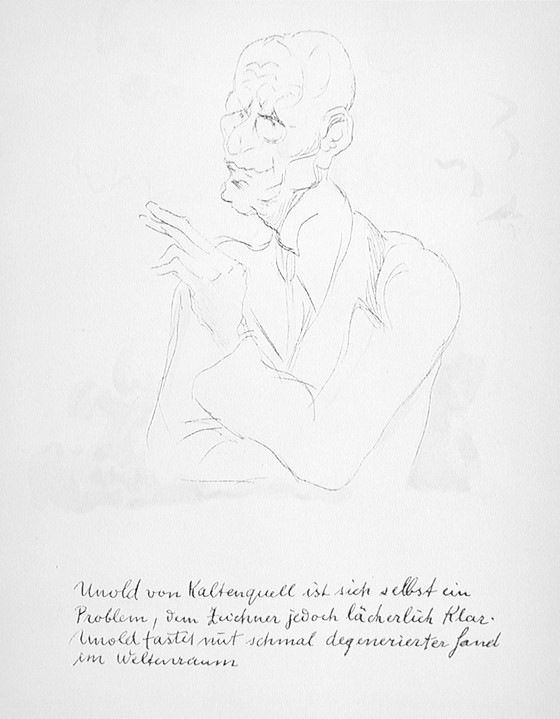 Unold von Kaltenquell ist sich selbst ein
Problem, dem Zeichner jedoch lächerlich Klar.
Unold tastet mit schmal degenerierter Hand
im Weltenraum